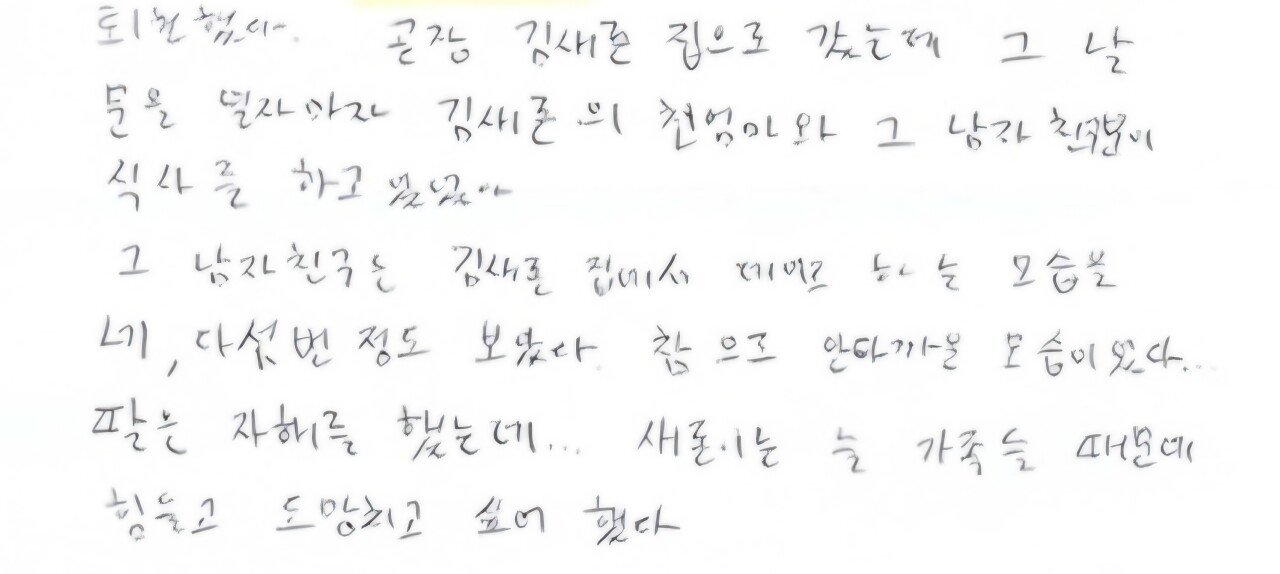 퇴원했다. 곧장 김새론 집으로 갔는데 그 날
문을 열자마자 김새론의 친엄마와 그 남자 친구분이
식사를 하고 있었다
그 남자친구는 김새론 집에서 데이트 하는 모습을
네, 다섯번 정도 보았다. 참으로 안타까운 모습이었다...
팔은 자해를 했는데... 새론이는 늘 가족들 때문에
힘들고 도망치고 싶어 했다